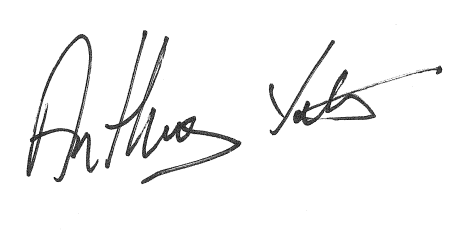 Anthony Yates